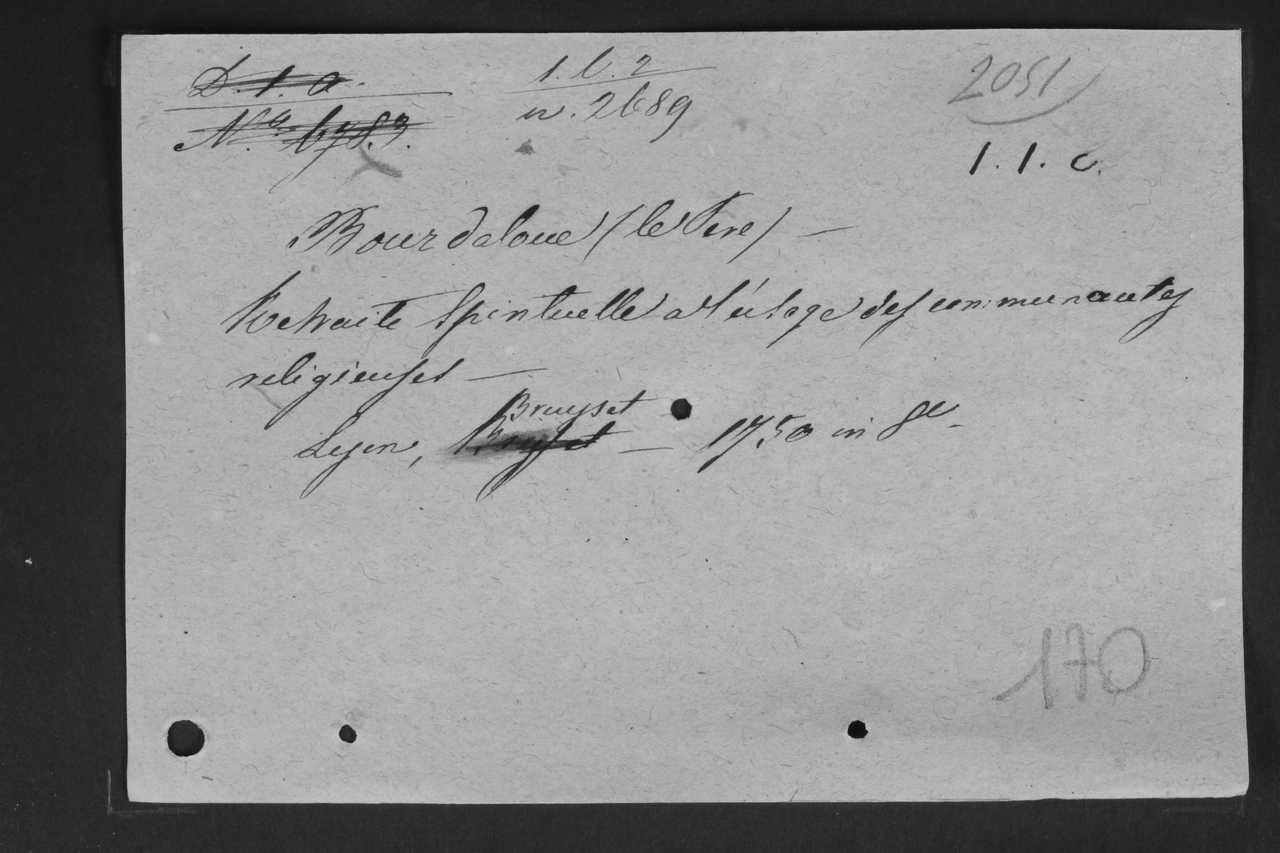 D. 1. a.
Nº 6783.
1. b. 2
n. 2689
2051
1. 1. c.
Bourdaloue (le Pere) —
Retraite Spirituelle a l'usage des communautes
religieuses —
Bruyset
Lyon, Bruyset — 1750 in 8º
170